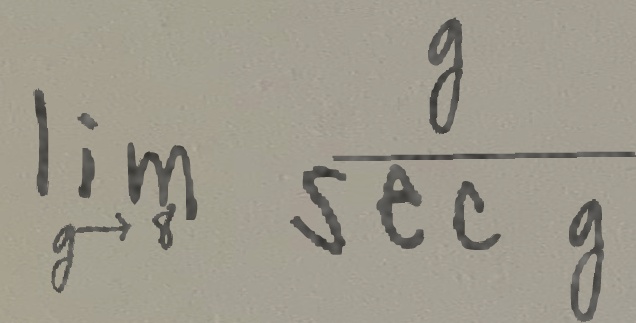 lim g→8 g/sec g